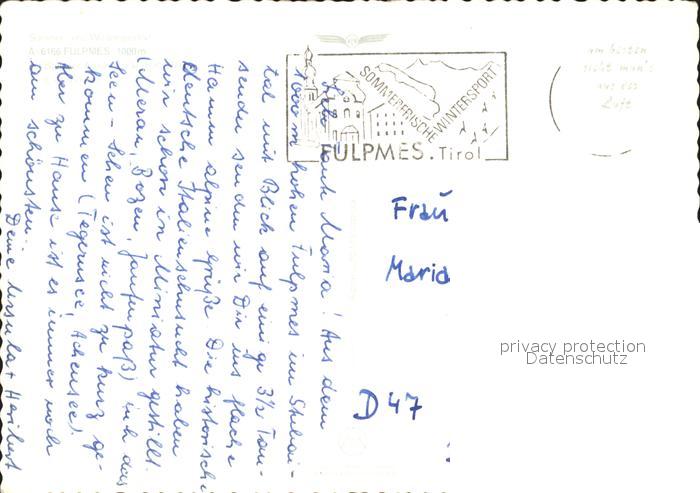 A-6166 FULPMES 1000m
SOMMERFRISCHE WINTERSPORT
FULPMES. Tirol
am besten
sieht man's
aus der
Luft
Tante Maria! Aus dem
1000m hohen Fulpmes im Stubai-
tal mit Blick auf einige 3½ Tau-
sender senden wir Dir ins flache
Hamm alpine Grüße. Die historische
deutsche Italiensehnsucht haben
wir schon in Miniatur gestillt.
(Meran, Bozen, Jaufenpaß) und das
Seen-Sehen ist nicht zu kurz ge-
kommen (Tegernsee, Achensee).
Aber zu Hause ist es immer noch
am schönsten.
Deine Ursula + Heribert
Frau
Maria
D 47
privacy protection
Datenschutz